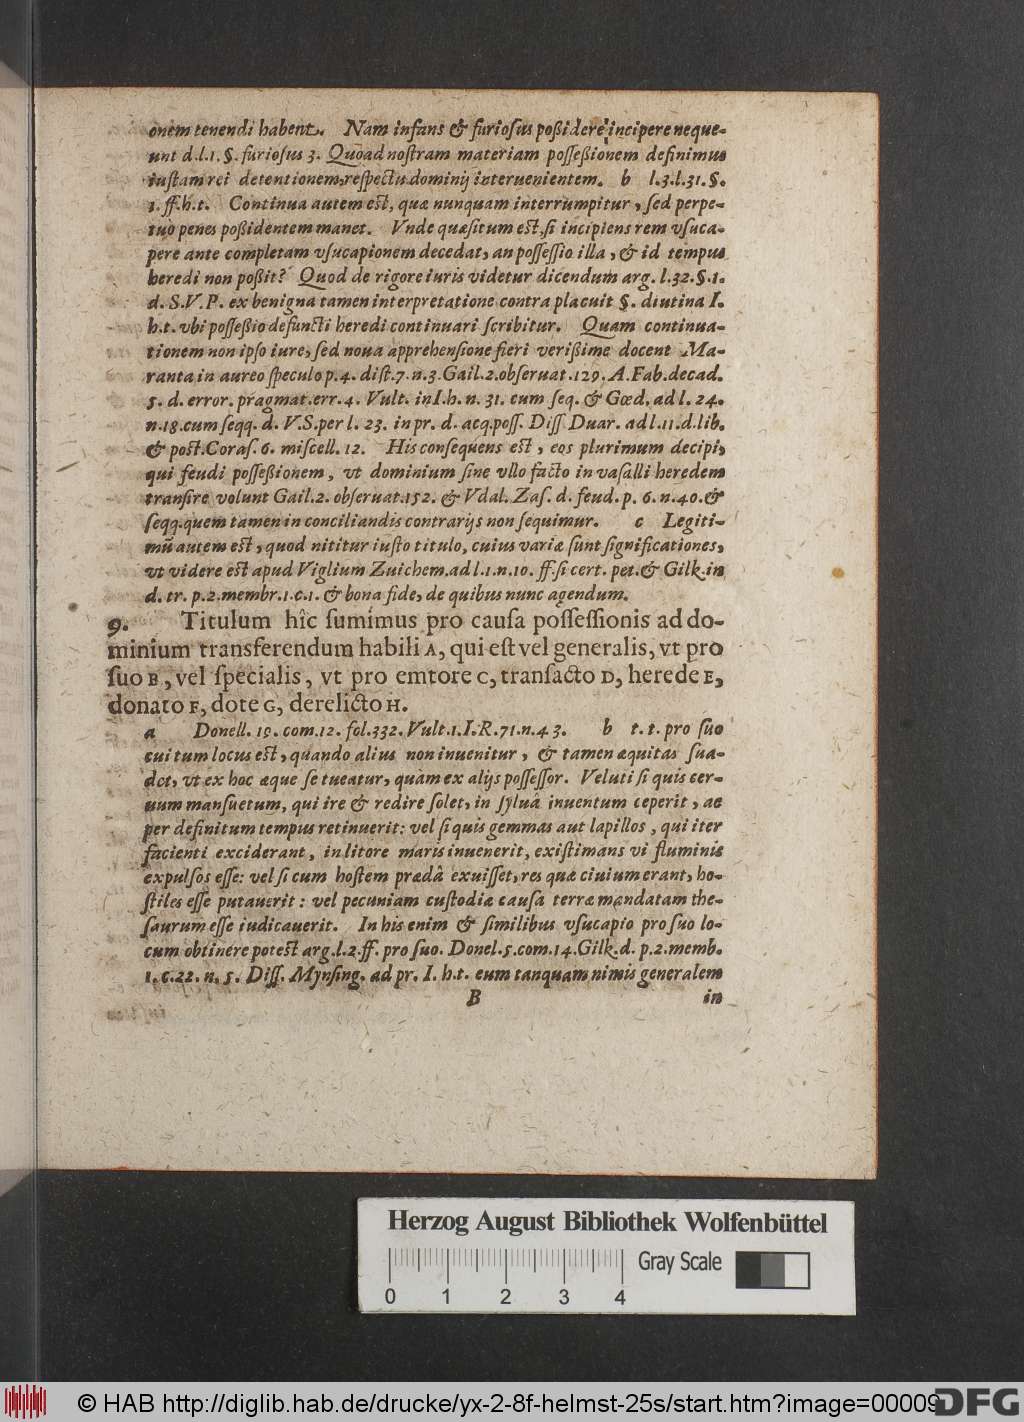 onem tenendi habent. Nam infans & furiosus poßidere incipere neque-
unt d.l.1.§. furiosus 3. Quoad nostram materiam posseßionem definimus
iustam rei detentionem, respectu dominij interuenientem. b l.3.l.31.§.
1.ff.h.t. Continua autem est, quæ nunquam interrumpitur, sed perpe-
tuo penes poßidentem manet. Vnde quæsitum est, si incipiens rem vsuca-
pere ante completam vsucapionem decedat, an possessio illa, & id tempus
heredi non poßit? Quod de rigore iuris videtur dicendum arg. l.32.§.1.
d. S.V.P. ex benigna tamen interpretatione contra placuit §. diutina I.
h.t. vbi posseßio defuncti heredi continuari scribitur. Quam continua-
tionem non ipso iure, sed noua apprehensione fieri verißime docent Ma-
ranta in aureo speculo p.4. dist.7.n.3. Gail.2.obseruat.129. A.Fab.decad.
5. d. error. pragmat.err.4. Vult. in I.h.n. 31. cum seq. & Gœd. ad l. 24.
n.18.cum seqq. d. V.S.per l. 23. in pr. d. acq.poss. Diss Duar. ad l.11.d.lib.
& post.Coras. 6. miscell. 12. His consequens est, eos plurimum decipi,
qui feudi posseßionem, vt dominium sine vllo facto in vasalli heredem
transire volunt Gail.2. obseruat.152. & Vdal. Zas. d. feud. p. 6. n.40.&
seqq.quem tamen in conciliandis contrarijs non sequimur. c Legiti-
mũ autem est, quod nititur iusto titulo, cuius variæ sunt significationes,
vt videre est apud Viglium Zuichem.ad l.1.n.10. ff.si cert. pet.& Gilk.in
d. tr. p.2.membr.1.c.1. & bona fide, de quibus nunc agendum.
9. Titulum hîc sumimus pro causa possessionis ad do-
minium transferendum habili A, qui est vel generalis, vt pro
suo B, vel specialis, vt pro emtore C, transacto D, herede E,
donato F, dote G, derelicto H.
a Donell. 10. com.12. fol.332. Vult.1.I.R.71.n.43. b t.t. pro suo
cui tum locus est, quando alius non inuenitur, & tamen æquitas sua-
det, vt ex hoc æque se tueatur, quàm ex alijs possessor. Veluti si quis cer-
uum mansuetum, qui ire & redire solet, in syluâ inuentum ceperit, ac
per definitum tempus retinuerit: vel si quis gemmas aut lapillos, qui iter
facienti exciderant, in litore maris inuenerit, existimans vi fluminis
expulsos esse: vel si cum hostem prædâ exuisset, res quæ ciuium erant, ho-
stiles esse putauerit: vel pecuniam custodiæ causa terræ mandatam the-
saurum esse iudicauerit. In his enim & similibus vsucapio pro suo lo-
cum obtinere potest arg.l.2.ff. pro suo. Donel.5.com.14.Gilk.d. p.2.memb.
1. c.22. n. 5. Diss. Mynsing. ad pr. I. h.t. eum tanquam nimis generalem
B in
Herzog August Bibliothek Wolfenbüttel
Gray Scale
0 1 2 3 4
© HAB http://diglib.hab.de/drucke/yx-2-8f-helmst-25s/start.htm?image=00009
DFG